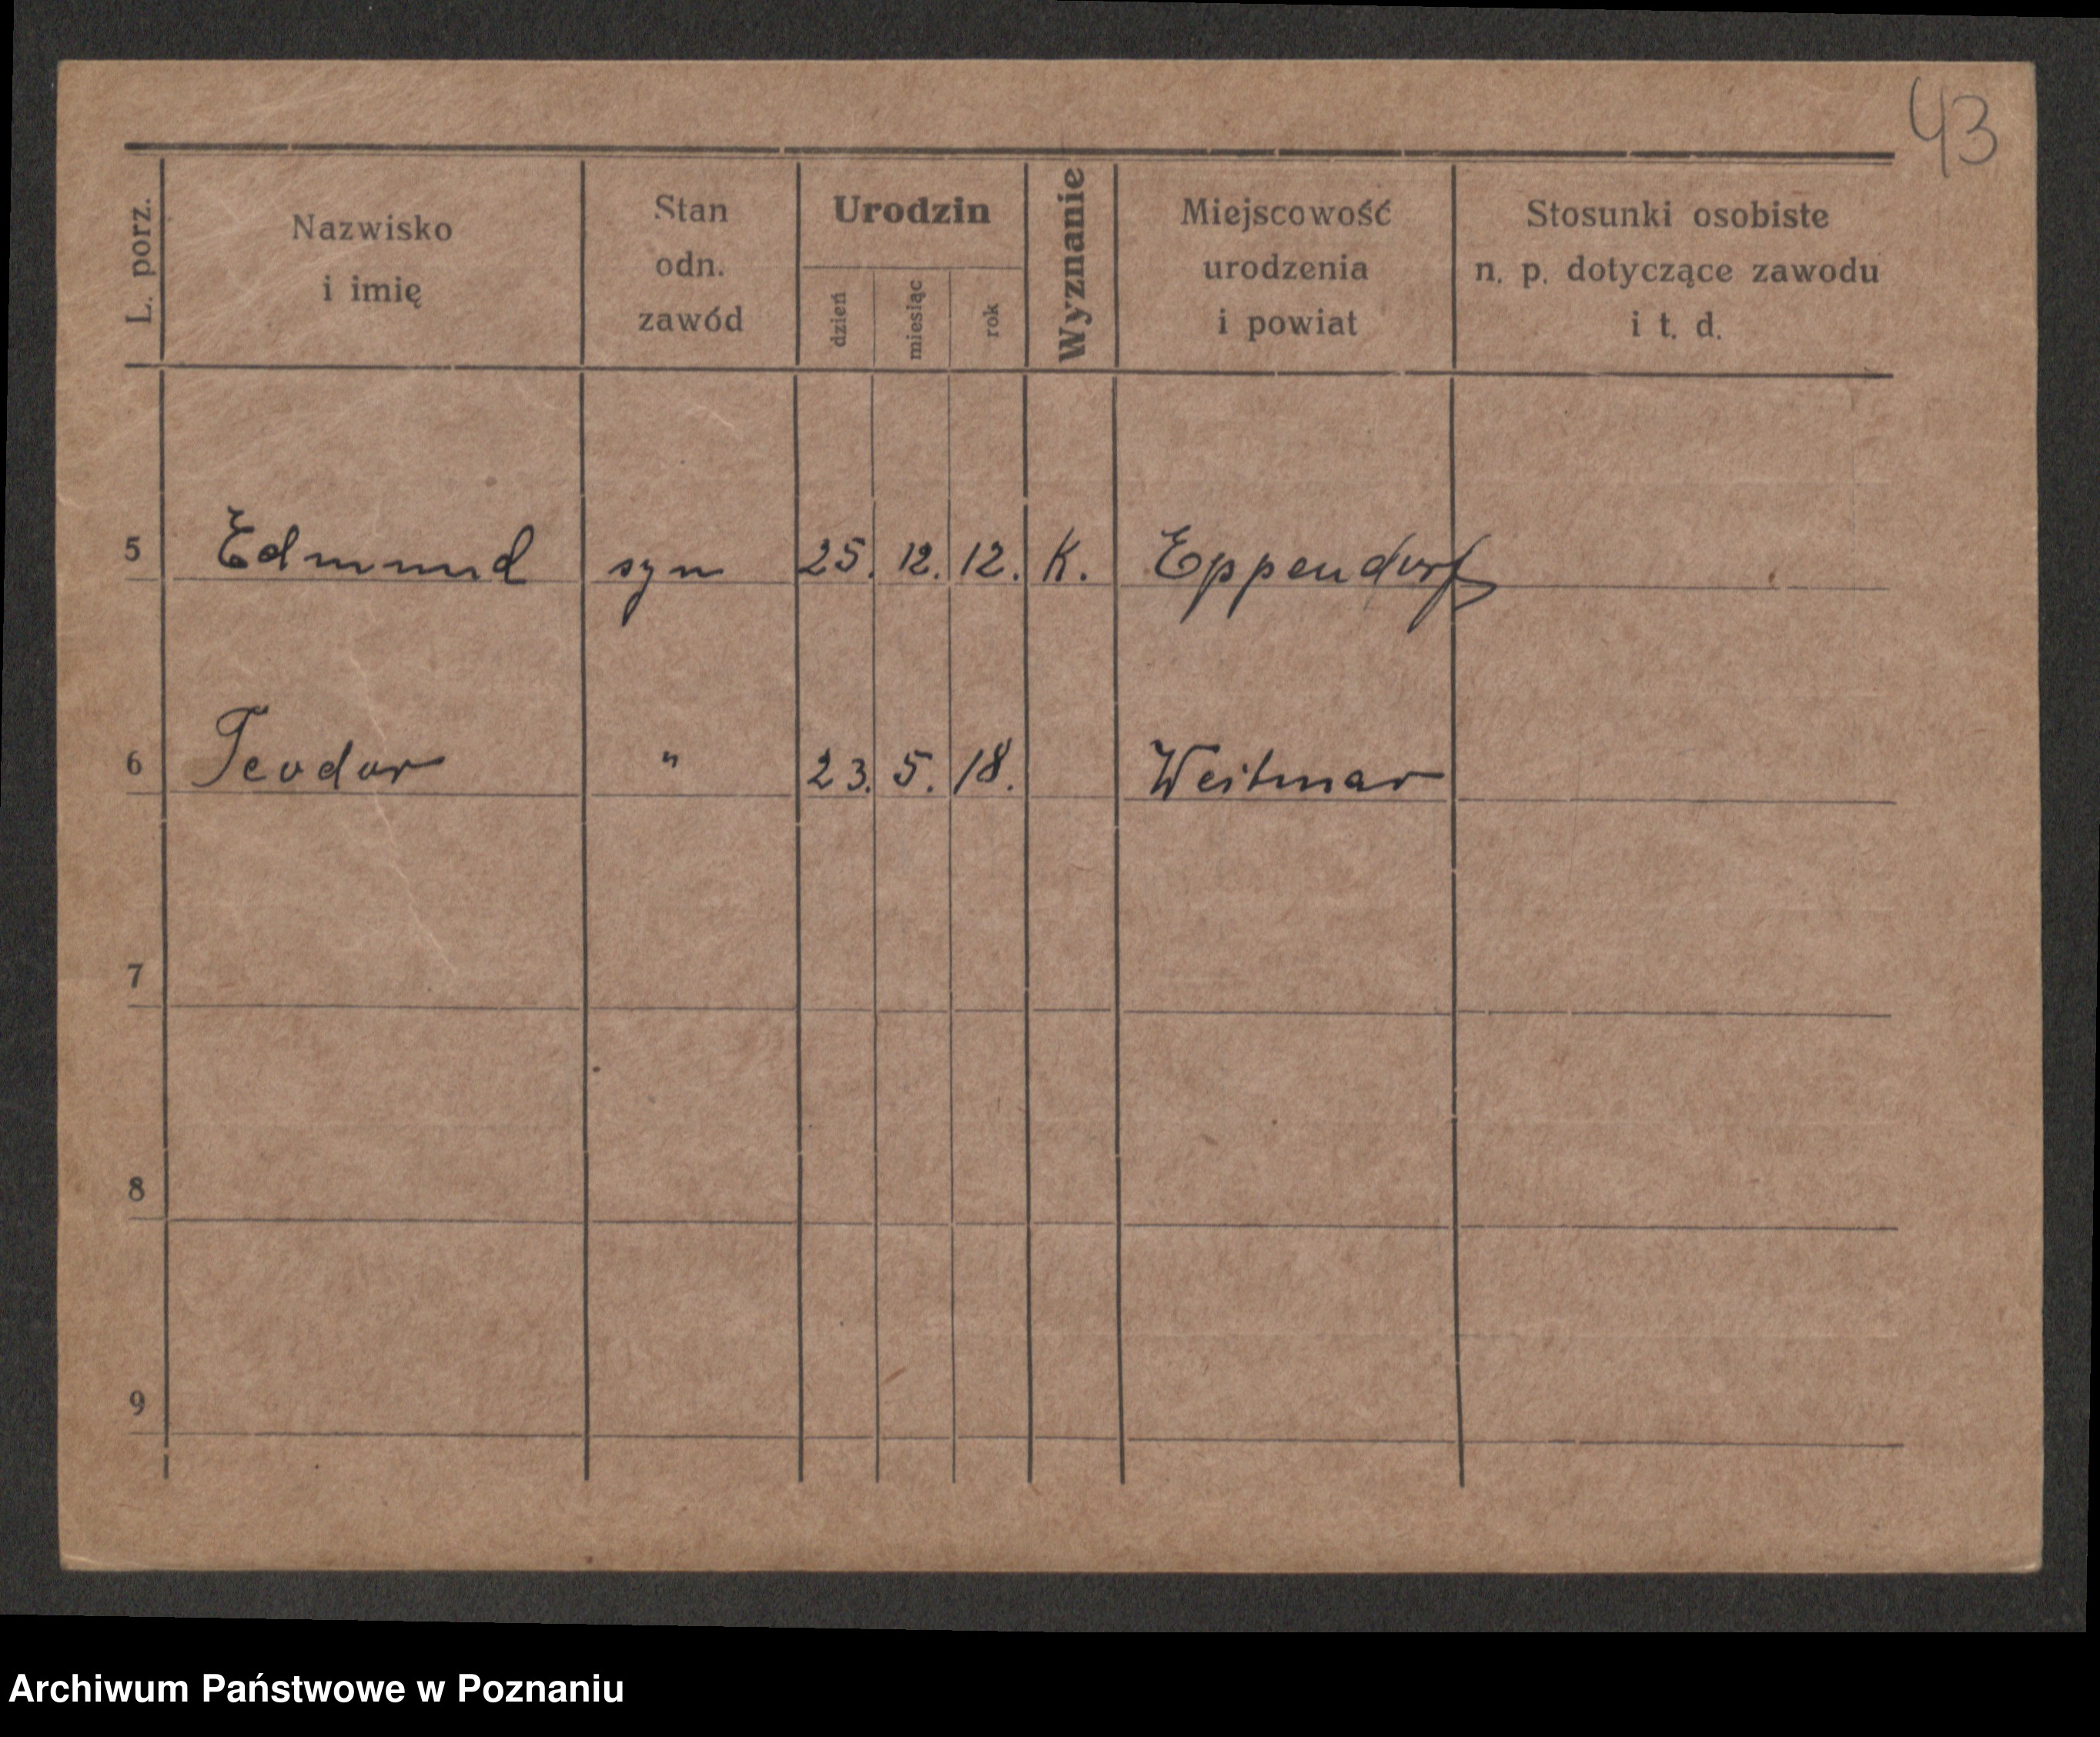 43
L. porz.
Nazwisko
i imię
Stan
odn.
zawód
Urodzin
dzień
miesiąc
rok
Wyznanie
Miejscowość
urodzenia
i powiat
Stosunki osobiste
n. p. dotyczące zawodu
i t. d.
5 Edmund syn 25. 12. 12. K. Eppendorf
6 Teodor " 23. 5. 18. Weitmar
7
8
9
Archiwum Państwowe w Poznaniu